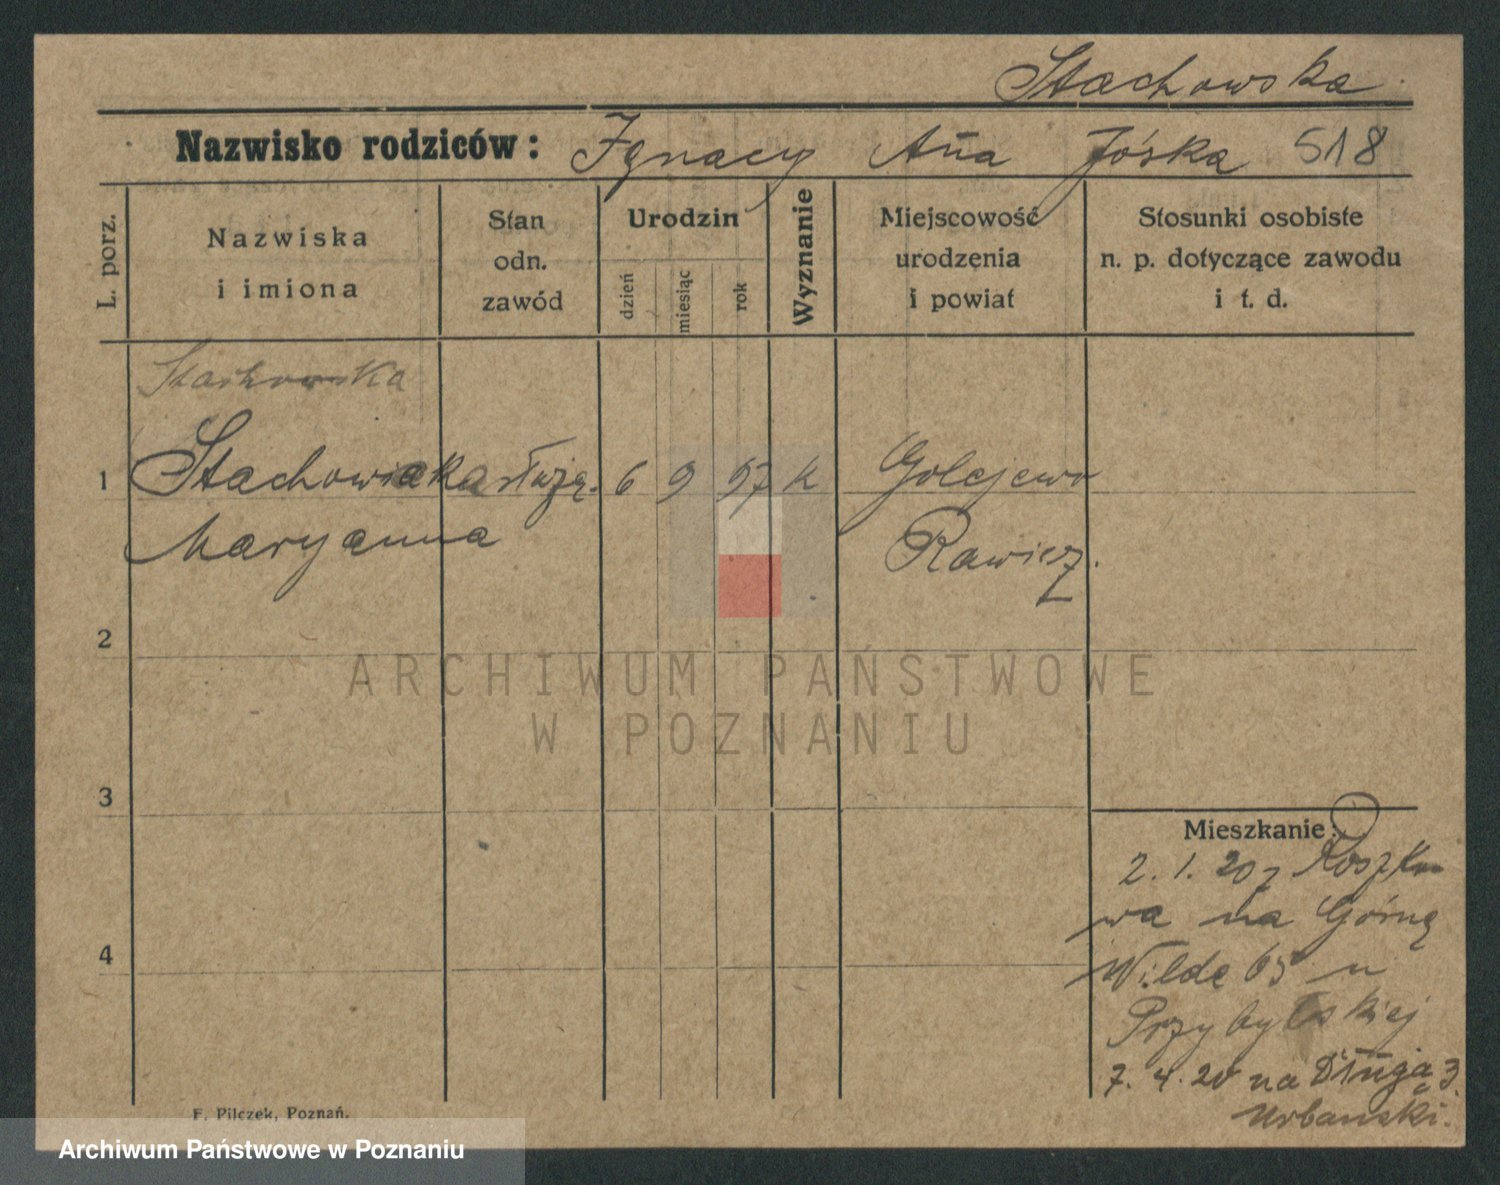 Stachowska
Nazwisko rodziców: Ignacy Anna Jóska 518
L. porz.
Nazwiska i imiona
Stan odn. zawód
Urodzin
dzień
miesiąc
rok
Wyznanie
Miejscowość urodzenia i powiat
Stosunki osobiste n. p. dotyczące zawodu i t. d.
Stachowska
1 Stachowiaka służą. 6 9 97 k Golejewo
Maryanna Rawicz.
2
ARCHIWUM PAŃSTWOWE
W POZNANIU
3
Mieszkanie:
2. 1. 20 z Koszko
wa na Górną
4
Wildę 65 u
Przybylskiej
7. 4. 20 na Długą 3.
Urbański.
F. Pilczek, Poznań.
Archiwum Państwowe w Poznaniu